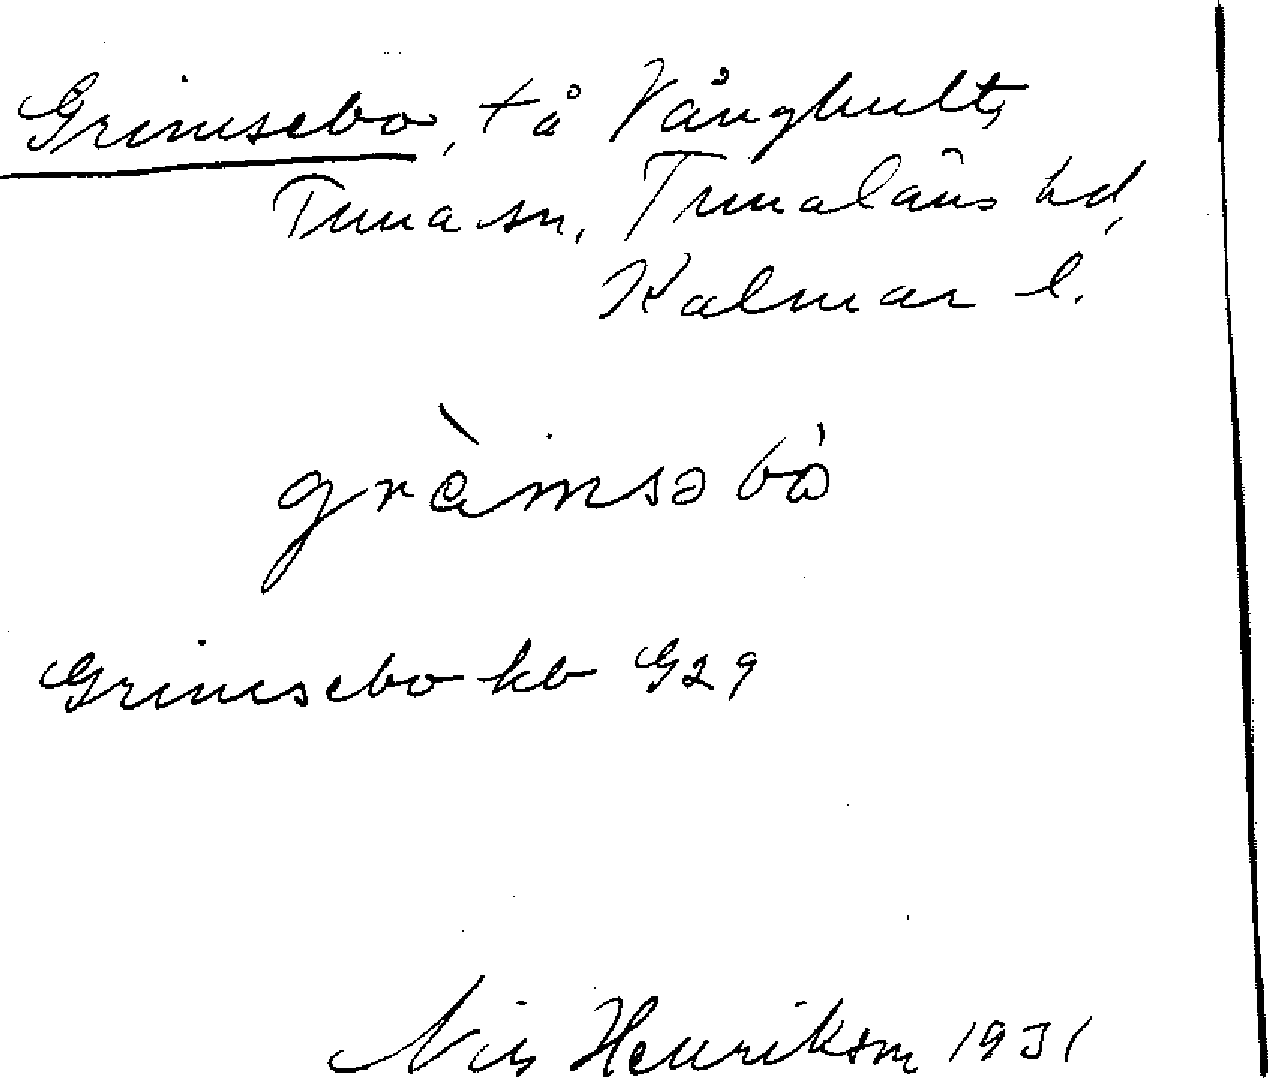 Grimsebo, t å Vånghult,
Tuna sn, Tunaläns hd,
Kalmar l.
grèmsəbò
Grimsebo kb G29
Nils Henrikson 1931